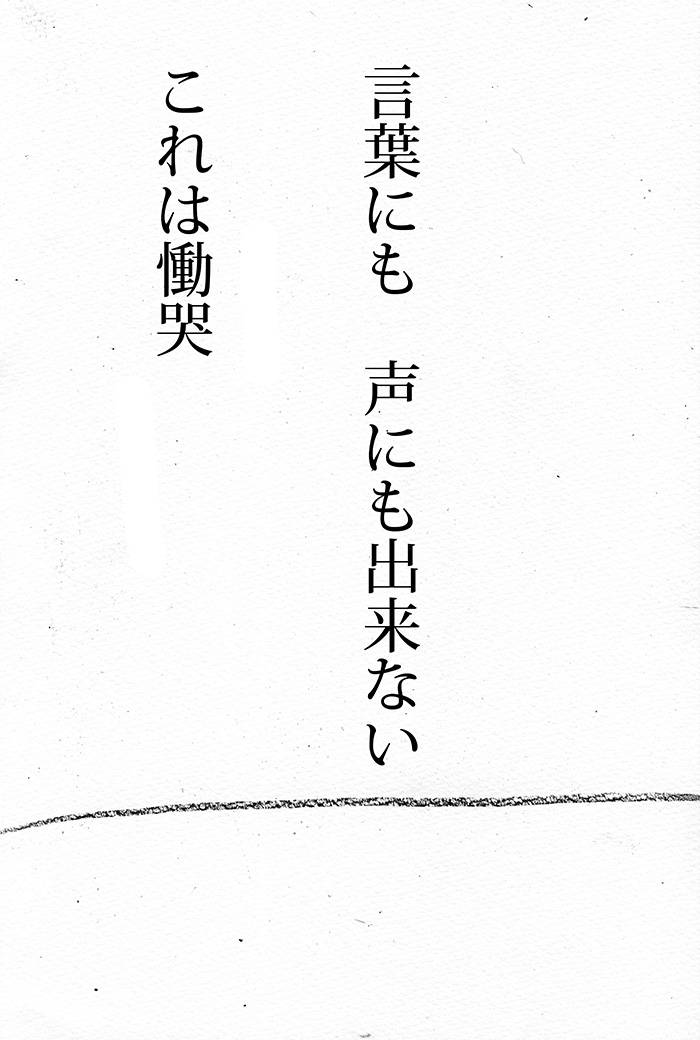 言葉にも　声にも出来ない
これは慟哭